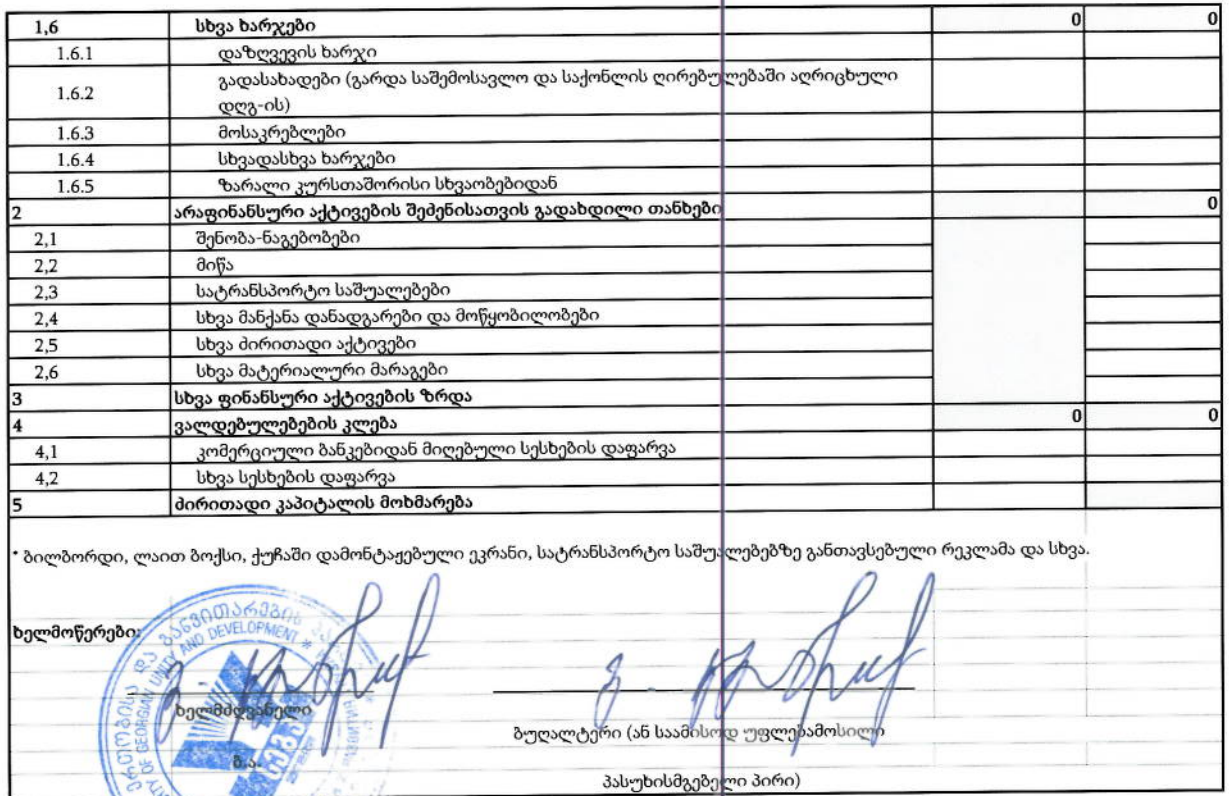 1,6 სხვა ხარჯები 0 0
1.6.1 დაზღვევის ხარჯი
გადასახადები (გარდა საშემოსავლო და საქონლის ღირებულებაში აღრიცხული
1.6.2
დღგ-ის)
1.6.3 მოსაკრებლები
1.6.4 სხვადასხვა ხარჯები
1.6.5 ზარალი კურსთაშორისი სხვაობებიდან
2 არაფინანსური აქტივების შეძენისათვის გადახდილი თანხები 0
2,1 შენობა-ნაგებობები
2,2 მიწა
2,3 სატრანსპორტო საშუალებები
2,4 სხვა მანქანა დანადგარები და მოწყობილობები
2,5 სხვა ძირითადი აქტივები
2,6 სხვა მატერიალური მარაგები
3 სხვა ფინანსური აქტივების ზრდა
4 ვალდებულებების კლება 0 0
4,1 კომერციული ბანკებიდან მიღებული სესხების დაფარვა
4,2 სხვა სესხების დაფარვა
5 ძირითადი კაპიტალის მოხმარება
* ბილბორდი, ლაით ბოქსი, ქუჩაში დამონტაჟებული ეკრანი, სატრანსპორტო საშუალებებზე განთავსებული რეკლამა და სხვა.
ხელმოწერები:
ერთობისა და განვითარების
OF GEORGIAN UNITY AND DEVELOPMENT
ხელმძღვანელი
ბუღალტერი (ან საამისოდ უფლებამოსილი
ბ.ა.
პასუხისმგებელი პირი)